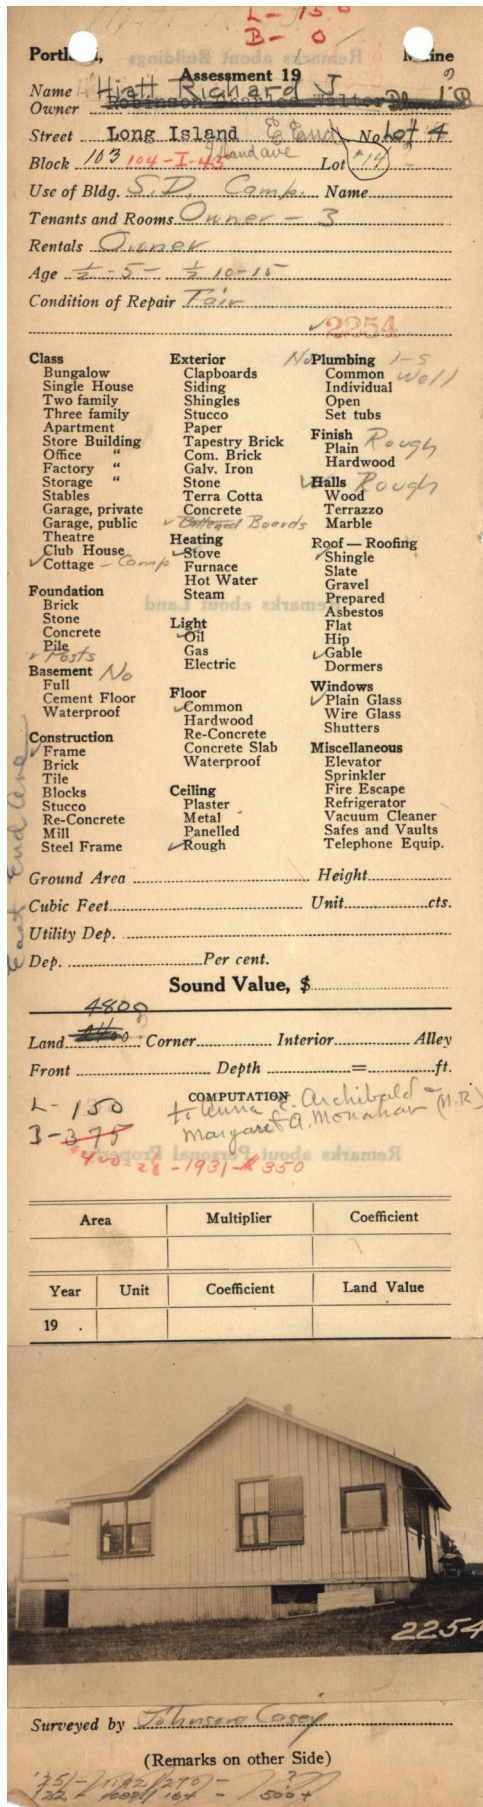 L - 150
B - 0
Portland, Maine
Remarks about Buildings
Assessment 19
Name Hiatt Richard J.
Owner Robinson Charles Walter Bland B
Street Long Island E End No Lot 4
Island ave
Block 103 104-I-45 Lot #14
Use of Bldg. S.D. Camp. Name
Tenants and Rooms Owner - 3
Rentals Owner
Age ½ - 5 - ½ 10-15
Condition of Repair Fair
✓2254
Class
Bungalow
Single House
Two family
Three family
Apartment
Store Building
Office "
Factory "
Storage "
Stables
Garage, private
Garage, public
Theatre
Club House
✓Cottage - Camp
Foundation
Brick
Stone
Concrete
Pile
✓ Posts
Basement No
Full
Cement Floor
Waterproof
Construction
✓Frame
Brick
Tile
Blocks
Stucco
Re-Concrete
Mill
Steel Frame
East End Ave
Exterior
Clapboards
Siding
Shingles
Stucco
Paper
Tapestry Brick
Com. Brick
Galv. Iron
Stone
Terra Cotta
Concrete
✓ Battened Boards
Heating
✓Stove
Furnace
Hot Water
Steam
Remarks about Land
Light
✓Oil
Gas
Electric
Floor
✓Common
Hardwood
Re-Concrete
Concrete Slab
Waterproof
Ceiling
Plaster
Metal
Panelled
✓Rough
No Plumbing 1-S
Common Well
Individual
Open
Set tubs
Finish Rough
Plain
Hardwood
✓Halls Rough
Wood
Terrazzo
Marble
Roof — Roofing
✓Shingle
Slate
Gravel
Prepared
Asbestos
Flat
Hip
✓Gable
Dormers
Windows
✓Plain Glass
Wire Glass
Shutters
Miscellaneous
Elevator
Sprinkler
Fire Escape
Refrigerator
Vacuum Cleaner
Safes and Vaults
Telephone Equip.
Ground Area Height
Cubic Feet Unit cts.
Utility Dep.
Dep. Per cent.
Sound Value, $
4800
Land Corner Interior Alley
Front Depth = ft.
COMPUTATION
L - 150 to Anna E. Archibald
B - 375 Margaret A. Monahan (M.R.)
Remarks about Personal Property
- 1931 - $350
Area Multiplier Coefficient
Year Unit Coefficient Land Value
19 .
2254
Surveyed by Johnson Casey
(Remarks on other Side)
500+